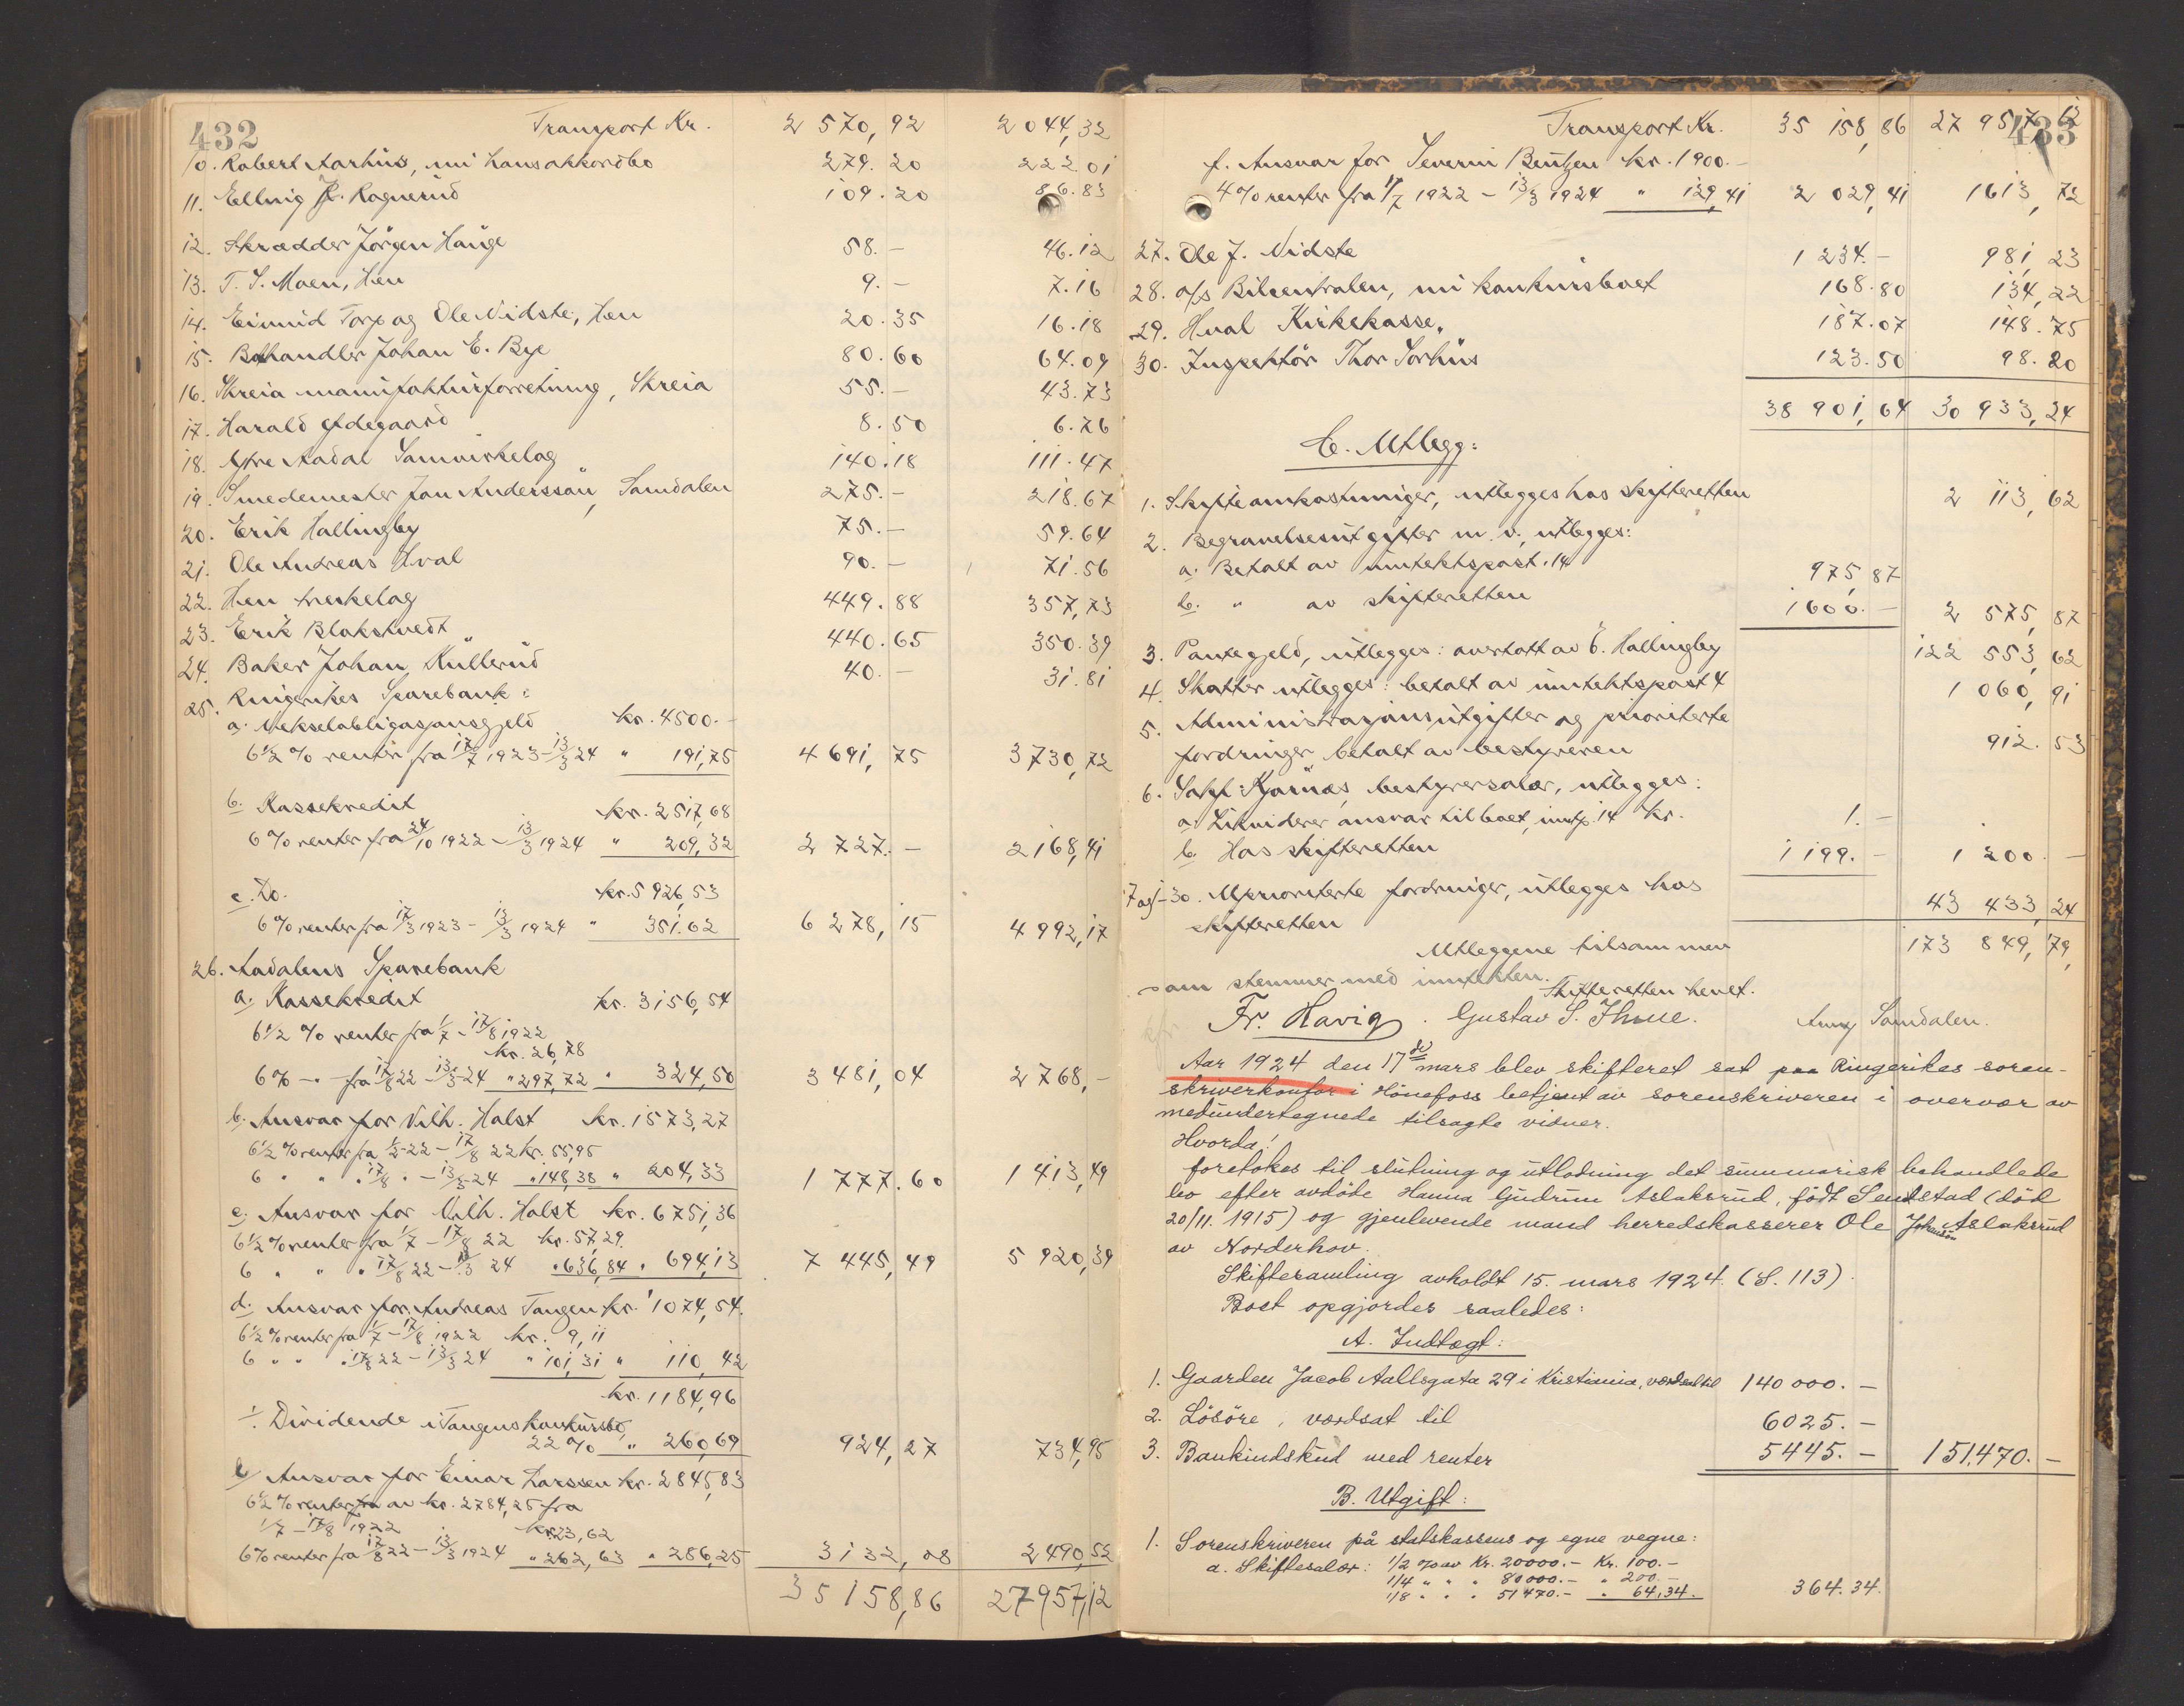 432
Transport Kr. 2 570,92 2 044,32
10. Robert Aarhus, nu hans akkordbo 279.20 222 01
11. Ellnig Fr. Ragnerud 109.20 86.83
12. Skrædder Jörgen Hauge 58.- 46.12
13. T. S. Moen, Hen 9.- 7.16
14. Eivind Torp og Ole Vidste, Hen 20.35 16.18
15. Bokhandler Johan E. Bye 80.60 64.09
16. Skreia manufakturforretning, Skreia 55.- 43.73
17. Harald Ødegaard 8.50 6.76
18. Ytre Aadal Samvirkelag 140.18 111.47
19. Smedemester Jan Anderssön, Samdalen 275.- 218.67
20. Erik Hallingby 75.- 59.64
21. Ole Andreas Hval 90.- 71.56
22. Hen treskelag 449.88 357,73
23. Erik Blakstvedt 440.65 350.39
24. Baker Johan Kullerud 40.- 31.81
25. Ringerikes Sparebank:
a. Vekselobligasjonsgjeld kr. 4500.-
6 1/2 % renter fra 17/7 1923 - 13/3 24 " 191,75 4 691,75 3 730,72
b. Kassekredit kr. 2517,68
6 % renter fra 24/10 1922 - 13/3 1924 " 209,32 2 727.- 2 168,41
c. Do. kr. 5 926,53
6 % renter fra 17/3 1923 - 13/3 1924 " 351.62 6 278,15 4 992,17
26. Aadalens Sparebank
a. Kassekredit kr. 3156,54
6 1/2 % renter fra 1/7 - 17/8 1922
kr. 26,78
6 % -"- fra 17/8 22 - 13/3 24 " 297,72 " 324,50 3 481,04 2 768,-
b. Ansvar for Vilh. Halst kr. 1573,27
6 1/2 % renter fra 1/2 22 - 17/8 22 kr. 55,95
6 " " " 17/8 " - 13/3 24 " 148,38 " 204,33 1 777.60 1 413,49
c. Ansvar for Vilh. Halst kr. 6751,36
6 1/2 % renter fra 1/7 - 17/8 22 kr. 57,29.
6 " " " 17/8 22 - 13/3 24 " 636,84 " 694,13 7 445,49 5 920,39
d. Ansvar for Andreas Tangen kr. 1074,54.
6 1/2 % renter fra 1/7 - 17/8 1922 kr. 9,11
6 " " " 17/8 22 - 13/3 24 " 101,31 " 110,42
kr. 1184,96
./. Dividende i Tangens konkursbo,
22 % " 260,69 924,27 734,95
e/ Ansvar for Einar Larssen kr. 2845,83
6 1/2 % renter fra av kr. 2784,25 fra
1/7 - 17/8 1922 kr. 23,62
6 % renter fra 17/8 22 - 13/3 1924 " 262,63 " 286,25 3 132,08 2 490,52
35158,86 27957,12
433
Transport Kr. 35 158,86 27 957,12
f. Ansvar for Severin Bentzen kr. 1900.-
4 % renter fra 1/7 1922 - 13/3 1924 " 129,41 2 029,41 1613,72
27. Ole J. Vidste 1 234.- 981,23
28. a/s Bilcentralen, nu konkursboet 168.80 134,22
29. Hval Kirkekasse. 187.07 148.75
30. Inspektör Thor Sorhus 123.50 98.20
38 901,64 30 933,24
C. Utlegg:
1. Skifteomkostninger, utlegges hos skifteretten 2 113,62
2. Begravelsesutgifter m. v., utlegges:
a. Betalt av inntektspost 14 975,87
b. " av skifteretten 1600.- 2 575,87
3. Pantegjeld, utlegges: overtatt av E. Hallingby 122 553,62
4. Skatter utlegges: betalt av inntektspost 4 1 060,91
5. Administrasjonsutgifter og prioriterte
fordringer, betalt av bestyreren 912.53
6. Sakf. Kjærnæs, bestyrersalær, utlegges:
a. Likviderer ansvar til boet, inntp. 14 kr. 1.-
b. Hos skifteretten 1 199.- 1 200.-
7 og 1-30. Uprioriterte fordringer, utlegges hos
skifteretten 43 433,24
Utleggene tilsammen 173 849,79,
som stemmer med inntekten.
Skifteretten hevet.
Fr. Havig. Gustav S. Thue. Anny Samdalen.
Aar 1924 den 17de mars blev skifteret sat paa Ringerikes soren-
skriverkontor i Hönefoss betjent av sorenskriveren i overvær av
medundertegnede tilsagte vidner.
Hvorda!
foretokes til slutning og utlodning det summarisk behandlede
bo efter avdöde Hanna Gudrun Aslaksrud, födt Sendstad (död
20/11. 1915) og gjenlevende mand herredskasserer Ole Johansön Aslaksrud
av Norderhov.
Skiftesamling avholdt 15. mars 1924. (S. 113).
Boet opgjordes saaledes:
A. Indtægt:
1. Gaarden Jacob Aallsgata 29 i Kristiania, værdsat til 140 000.-
2. Lösöre, værdsat til 6025.-
3. Bankindskud med renter 5445.- 151.470.-
B. Utgift:
1. Sorenskriveren på statskassens og egne vegne:
a. Skiftesalær: 1/2 % av Kr. 20000.- Kr. 100.-
1/4 " " " 80000.- " 200.-
1/8 " " " 51470.- " 64.34. 364.34.